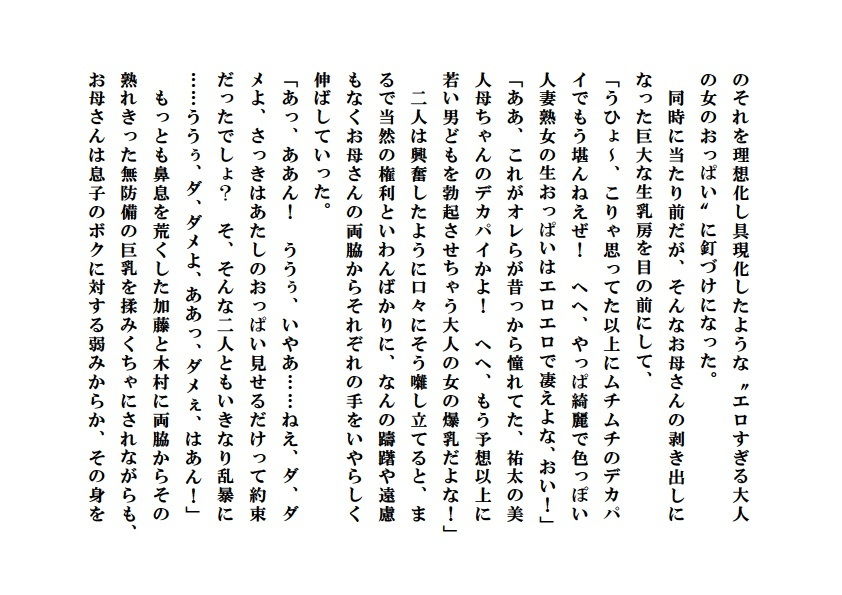 のそれを理想化し具現化したような〝エロすぎる大人
の女のおっぱい〟に釘づけになった。
　同時に当たり前だが、そんなお母さんの剥き出しに
なった巨大な生乳房を目の前にして、
「うひょ～、こりゃ思ってた以上にムチムチのデカパ
イでもう堪んねえぜ！　へへ、やっぱ綺麗で色っぽい
人妻熟女の生おっぱいはエロエロで凄えよな、おい！」
「ああ、これがオレらが昔っから憧れてた、祐太の美
人母ちゃんのデカパイかよ！　へへ、もう予想以上に
若い男どもを勃起させちゃう大人の女の爆乳だよな！」
　二人は興奮したように口々にそう囃し立てると、ま
るで当然の権利といわんばかりに、なんの躊躇や遠慮
もなくお母さんの両脇からそれぞれの手をいやらしく
伸ばしていった。
「あっ、ああん！　ううぅ、いやあ……ねえ、ダ、ダ
メよ、さっきはあたしのおっぱい見せるだけって約束
だったでしょ？　そ、そんな二人ともいきなり乱暴に
……ううぅ、ダ、ダメよ、ああっ、ダメぇ、はあん！」
　もっとも鼻息を荒くした加藤と木村に両脇からその
熟れきった無防備の巨乳を揉みくちゃにされながらも、
お母さんは息子のボクに対する弱みからか、その身を